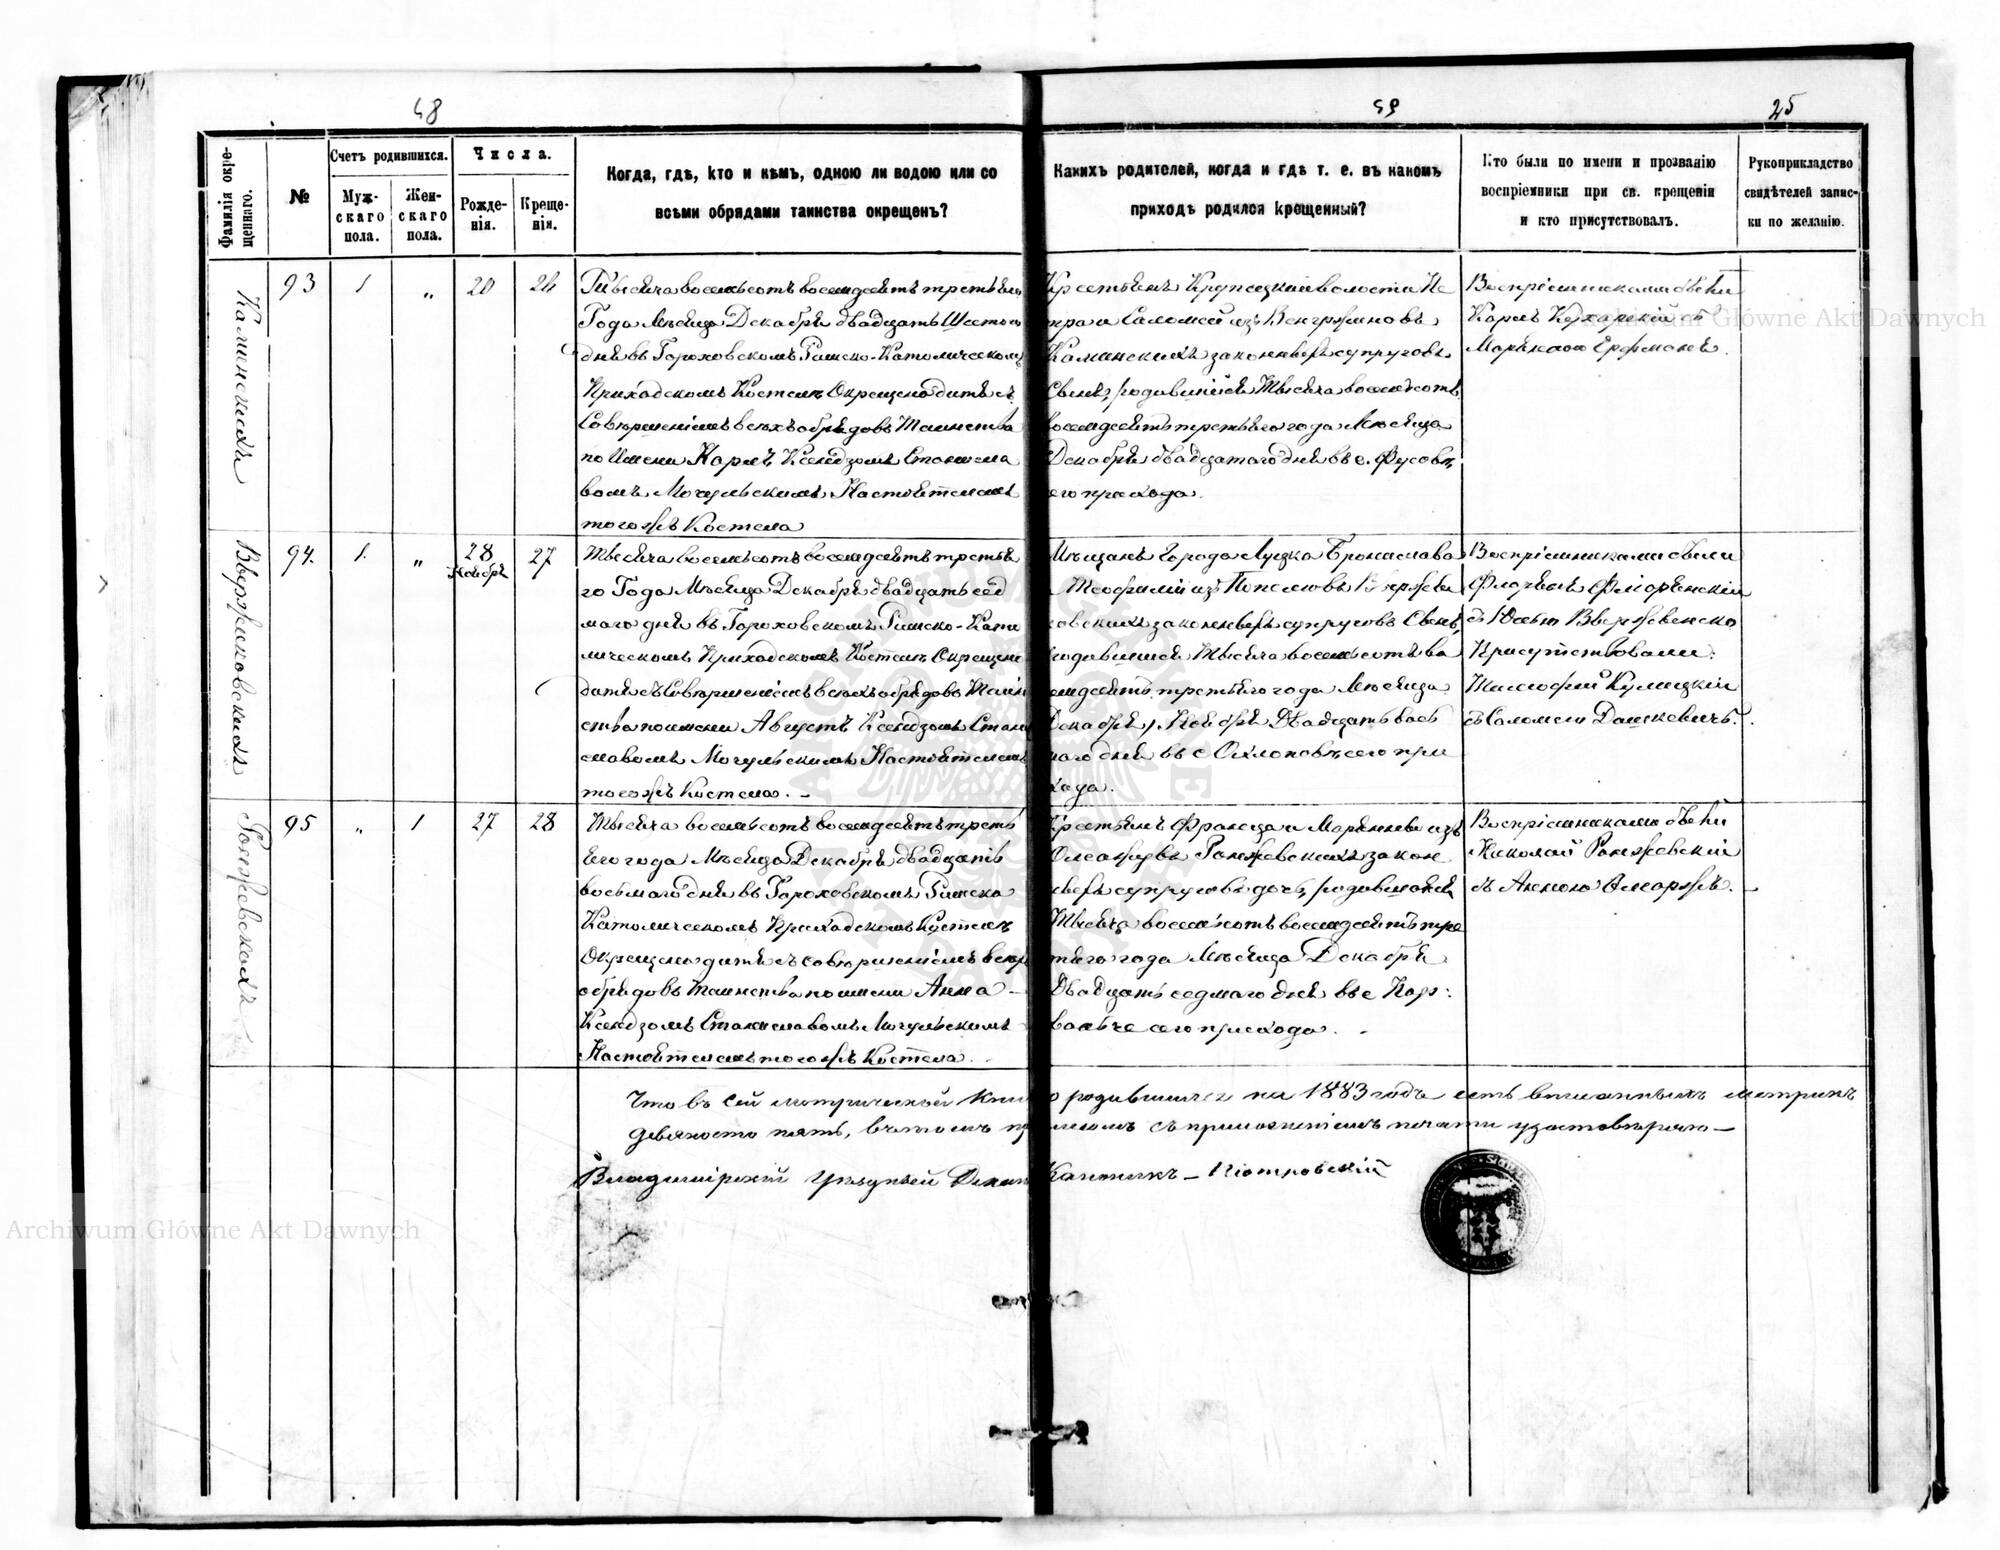 48
49
25
Фамилія окрещеннаго.
№
Счетъ родившихся.
Мужскаго пола.
Женскаго пола.
Числа.
Рожденія.
Крещенія.
Когда, гдѣ, кто и кѣмъ, одною ли водою или со
всѣми обрядами таинства окрещенъ?
Какихъ родителей, когда и гдѣ т. е. въ какомъ
приходѣ родился крещенный?
Кто были по имени и прозванію
воспріемники при св. крещеніи
и кто присутствовалъ.
Рукоприкладство
свидѣтелей записки
по желанію.
Каминскихъ
93 1 „ 20 26
Тысяча восемьсотъ восемдесятъ третьяго
Года Мѣсяца Декабря двадцать Шестого
дня въ Гороховскомъ Римско-Католическомъ
Приходскомъ Костелѣ Окрещено дитя съ
Совершеніемъ всѣхъ обрядовъ Таинства
по Имени Карлъ Ксендзомъ Станисла
вомъ Могульскимъ Настоятелемъ
тогожъ Костела
Крестьянъ волости Пе
тра и Саломеи изъ Венгржиновъ
Каминскихъ законныхъ супруговъ
Сынъ, родившійся Тысяча восемьсотъ
восемдесятъ третьяго года Мѣсяца
Декабря двадцатаго дня въ с.
его прихода.
Воспріемниками были
Карлъ Кухарскій съ
94. 1. „ 28 Ноября 27
Тысяча восемьсотъ восемдесятъ третья
го Года Мѣсяца Декабря двадцать сед
маго дня въ Гороховскомъ Римско-Като
лическомъ Приходскомъ Костелѣ Окрещено
дитя съ Совершеніемъ всѣхъ обрядовъ Таин
ства по имени Августъ Ксендзомъ Стани
славомъ Могульскимъ Настоятелемъ
тогожъ Костела. –
Мѣщанъ Города Луцка Бронислава
и Теофиліи изъ
законныхъ супруговъ Сынъ,
родившійся Тысяча восемьсотъ во
семдесятъ третьяго года Мѣсяца
Декабря, Ноября Двадцать вось
маго дня въ с его при
хода.
Воспріемниками были
Присутствовали:
съ Саломеи Дашкевичъ.
95 „ 1 27 28
Тысяча восемьсотъ восемдесятъ треть
его года Мѣсяца Декабря двадцать
восьмаго дня въ Гороховскомъ Римско
Католическомъ Приходскомъ Костелѣ
Окрещено дитя съ совершеніемъ всѣхъ
обрядовъ Таинства по имени Анна –
Ксендзомъ Станиславомъ Могульскимъ
Настоятелемъ тогожъ Костела.
Крестьянъ Франца и Маріянны изъ
закон
ныхъ супруговъ дочь, родившаяся
Тысяча восемьсотъ восемдесятъ тре
тьяго года Мѣсяца Декабря
Двадцать седмаго дня въ с
сего прихода. –
Воспріемниками были
Николай
съ Анною
Что въ сей метрической книгѣ о родившихся на 1883 годъ есть вписанныхъ метрикъ
девяносто пять, въ томъ съ приложеніемъ печати удостовѣряю –
Владимірскій Уѣздный Деканъ Каноникъ – Піотровскій
Archiwum Główne Akt Dawnych
Archiwum Główne Akt Dawnych